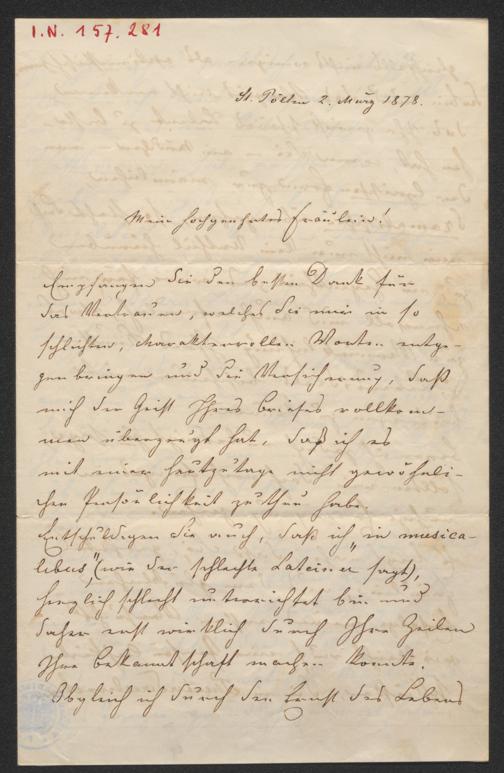 I.N. 157.281
St. Pölten 2. März 1878.
Mein hochgeehrtes Fräulein!
Empfangen Sie den besten Dank für
das Vertrauen, welches Sie mir in so
schlichten, charaktervollen Worten entge-
genbringen und die Versicherung, daß
mich der Geist Ihres Briefes vollkom-
men überzeugt hat, daß ich es
mit einer heutzutage nicht gewöhnli-
chen Persönlichkeit zu thun habe.
Entschuldigen Sie auch, daß ich „in musica-
libus“, (wie der schlechte Lateiner sagt),
herzlich schlecht unterrichtet bin und
daher erst wirklich durch Ihre Zeilen
Ihre Bekanntschaft machen konnte.
Obgleich ich durch den Ernst des Lebens